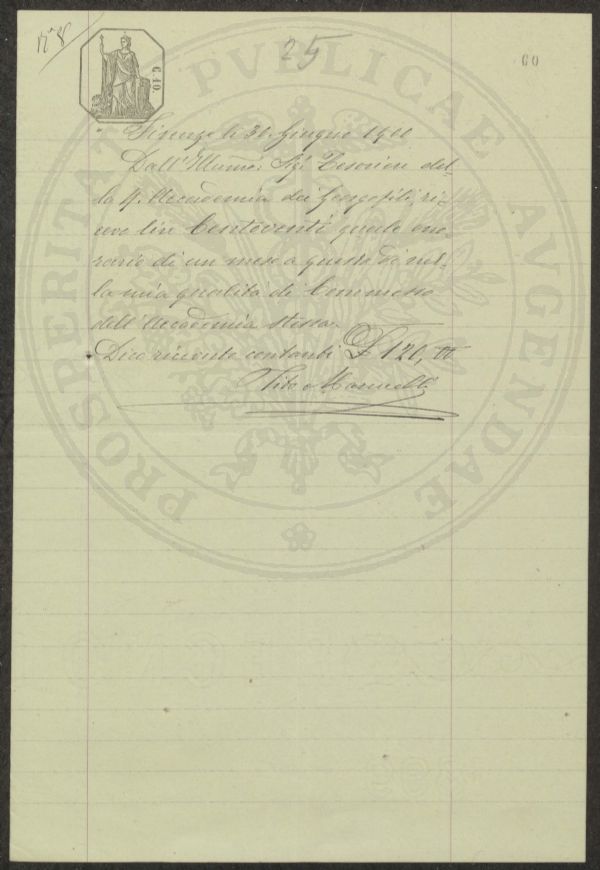 N° 8
25
60
C. 10.
PROSPERITATI PVBLICAE AVGENDAE
Firenze li 30 Giugno 1900
Dall'Illmo: Sig: Tesoriere del-
la R. Accademia dei Georgofili, ri-
cevo lire Centoventi quale ono-
rario di un mese a questo dì nel-
la mia qualità di Commesso
dell'Accademia stessa.
Dico ricevute contanti £ 120,
Tito Mannelli